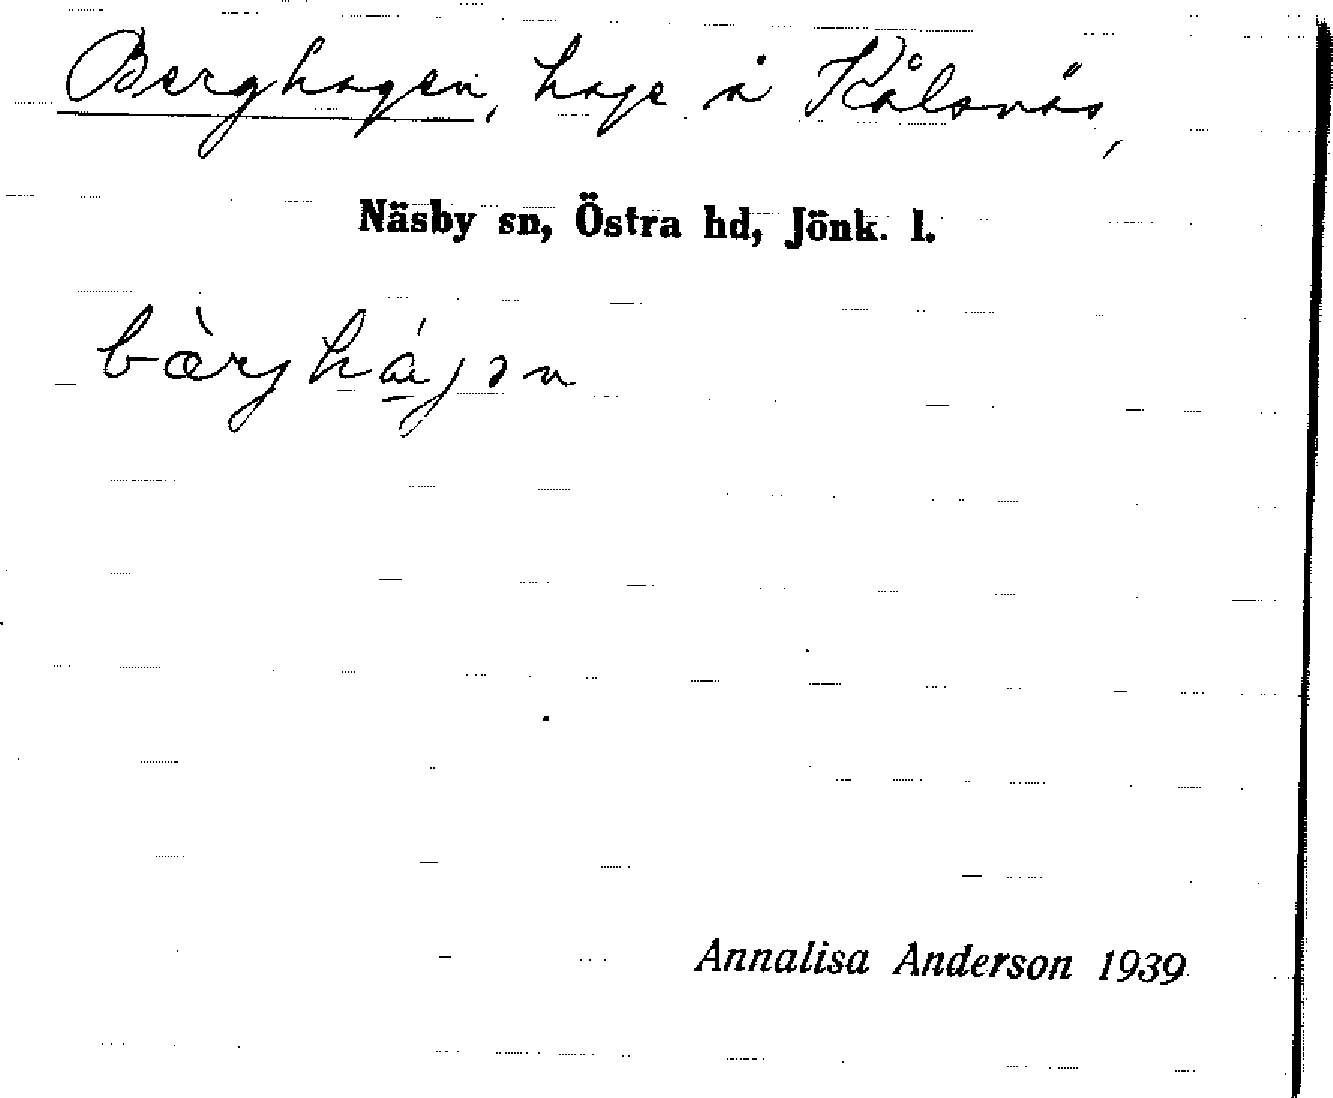 Berghagen, hage å Kålsnäs,
Näsby sn, Östra hd, Jönk. l.
bærjhagən
Annalisa Anderson 1939